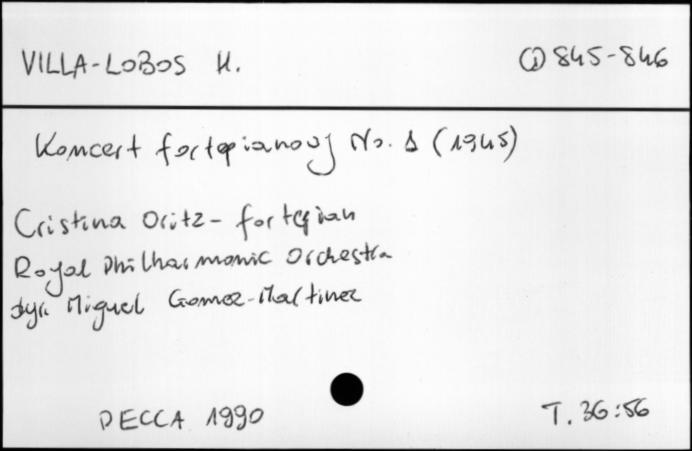 VILLA-LOBOS H. ⓘ 845-846
Koncert fortepianowy No. 1 (1945)
Cristina Oritz - fortepian
Royal Philharmonic Orchestra
dyr. Miguel Gomez-Martinez
DECCA 1990 T. 36:56